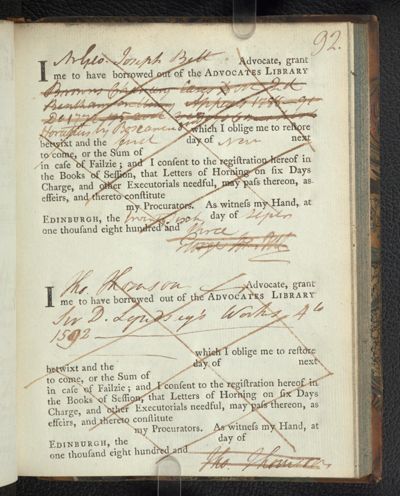 92.
I Mr Geo. Joseph Bell Advocate, grant
me to have borrowed out of the ADVOCATES LIBRARY
Horatius by
which I oblige me to reſtore
betwixt and the day of next
to come, or the Sum of
in caſe of Failzie; and I conſent to the regiſtration hereof in
the Books of Seſſion, that Letters of Horning on ſix Days
Charge, and other Executorials needful, may paſs thereon, as
effeirs, and thereto conſtitute
my Procurators. As witneſs my Hand, at
EDINBURGH, the day of
one thouſand eight hundred and
I Tho. Thomson Advocate, grant
me to have borrowed out of the ADVOCATES LIBRARY
Sir D. Lyndsey's Works 4to
1592
which I oblige me to reſtore
betwixt and the day of next
to come, or the Sum of
in caſe of Failzie; and I conſent to the regiſtration hereof in
the Books of Seſſion, that Letters of Horning on ſix Days
Charge, and other Executorials needful, may paſs thereon, as
effeirs, and thereto conſtitute
my Procurators. As witneſs my Hand, at
EDINBURGH, the day of
one thouſand eight hundred and
Tho. Thomson